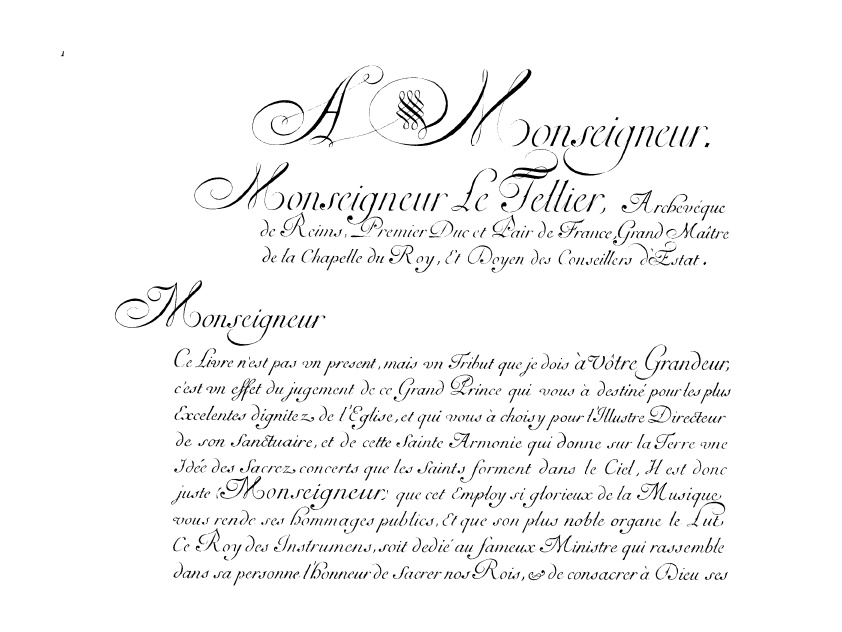 1
A Monseigneur.
Monseigneur Le Tellier, Archevéque
de Reims, Premier Duc et Pair de France, Grand Maître
de la Chapelle du Roy, Et Doyen des Conseillers d'Estat.
Monseigneur
Ce Livre n'est pas vn present, mais vn Tribut que je dois à Vôtre Grandeur,
c'est vn effet du jugement de ce Grand Prince qui vous à destiné pour les plus
Excelentes dignitez de l'Eglise, et qui vous à choisy pour l'Illustre Directeur
de son Sanctuaire, et de cette Sainte Armonie qui donne sur la Terre vne
Idée des Sacrez concerts que les Saints forment dans le Ciel, Il est donc
juste (Monseigneur) que cet Employ si glorieux de la Musique
vous rende ses hommages publics, Et que son plus noble organe le Lut,
Ce Roy des Instrumens, soit dedié au fameux Ministre qui rassemble
dans sa personne l'honneur de Sacrer nos Rois, & de consacrer à Dieu ses